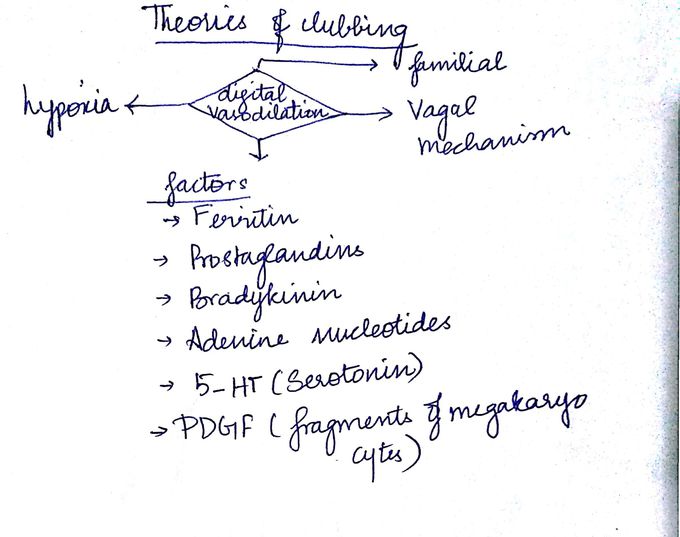 Theories of clubbing
familial
hypoxia
digital
vasodilation
Vagal
mechanism
factors
→ Ferritin
→ Prostaglandins
→ Bradykinin
→ Adenine nucleotides
→ 5-HT (Serotonin)
→ PDGF (fragments of megakaryo
cytes)